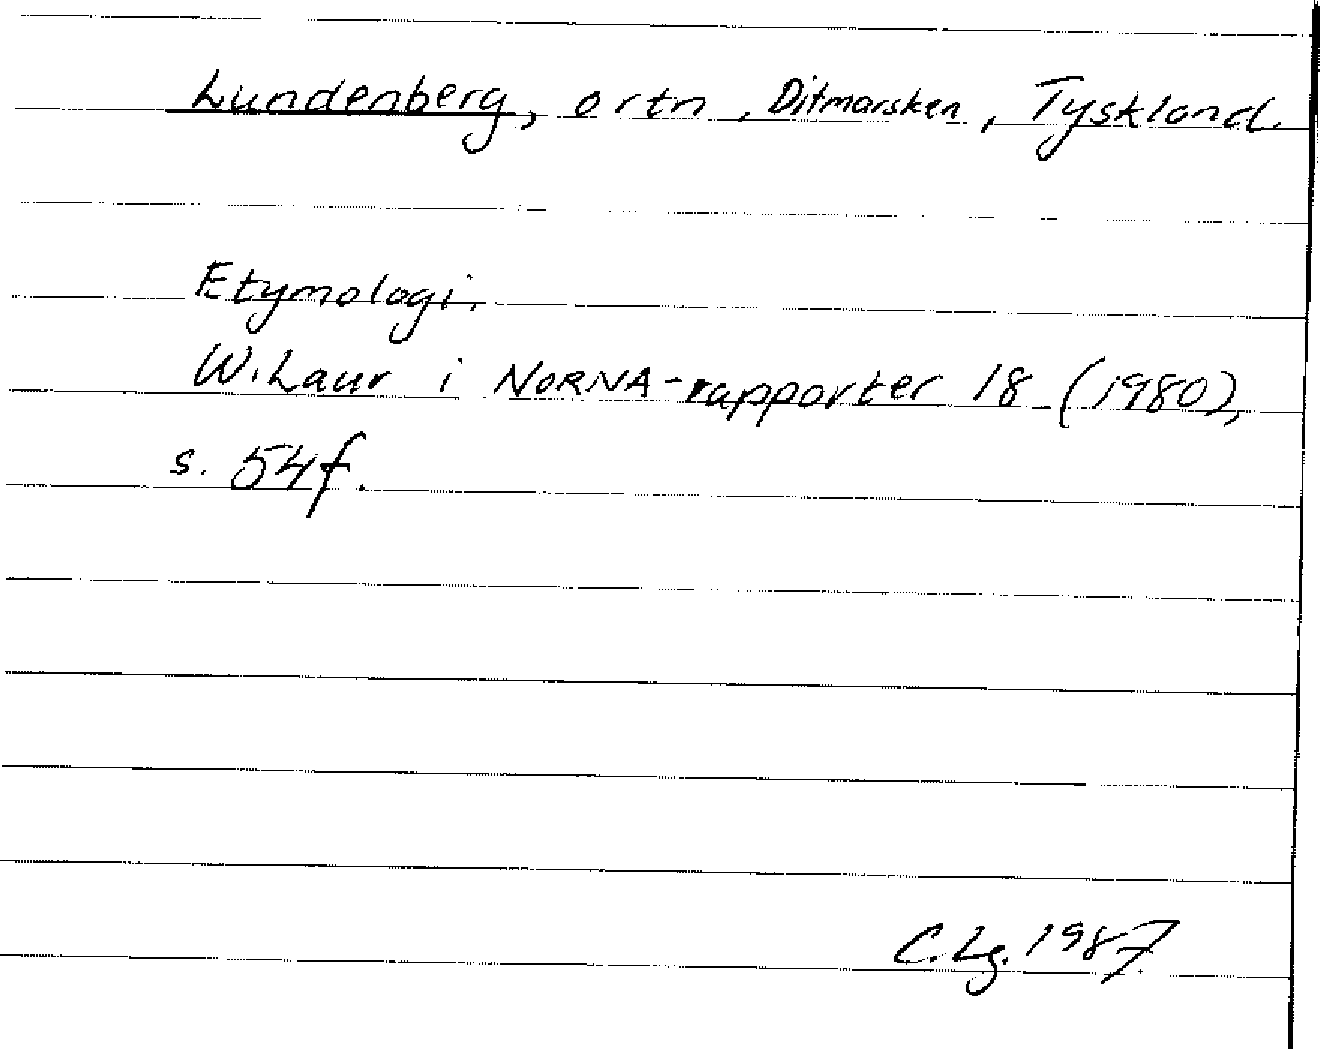 Lundenberg, ortn, Ditmarsken, Tyskland.
Etymologi.
W. Laur i NORNA-rapporter 18 (1980),
s. 54f.
C.Lg. 1987